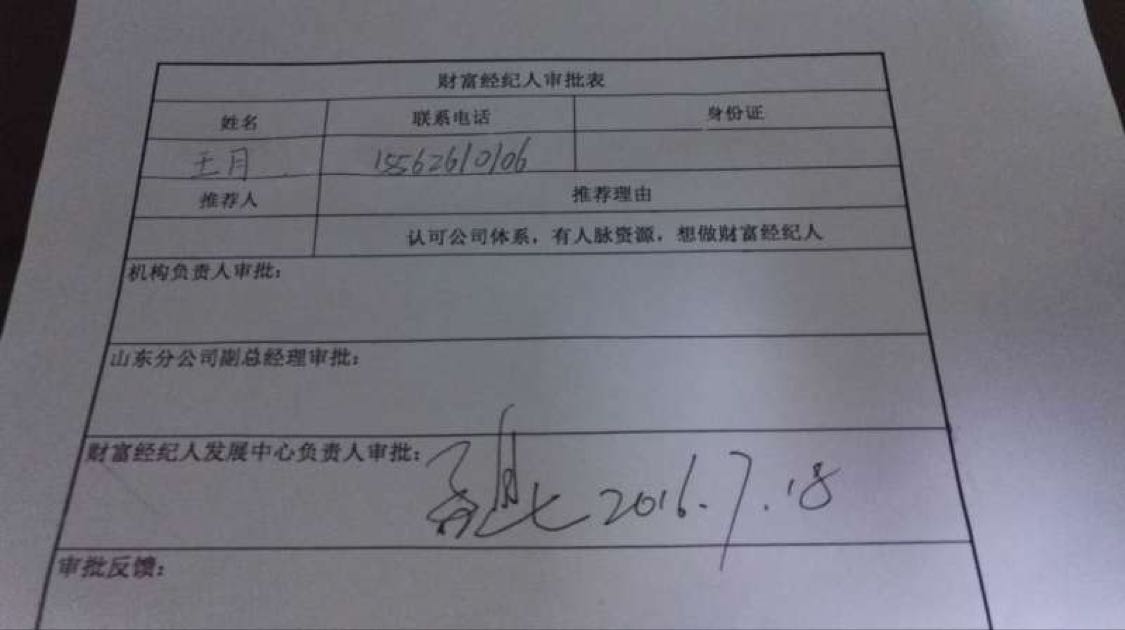 财富经纪人审批表
姓名 联系电话 身份证
王月 15562610106
推荐人 推荐理由
认可公司体系，有人脉资源，想做财富经纪人
机构负责人审批：
山东分公司副总经理审批：
财富经纪人发展中心负责人审批： 2016.7.18
审批反馈：